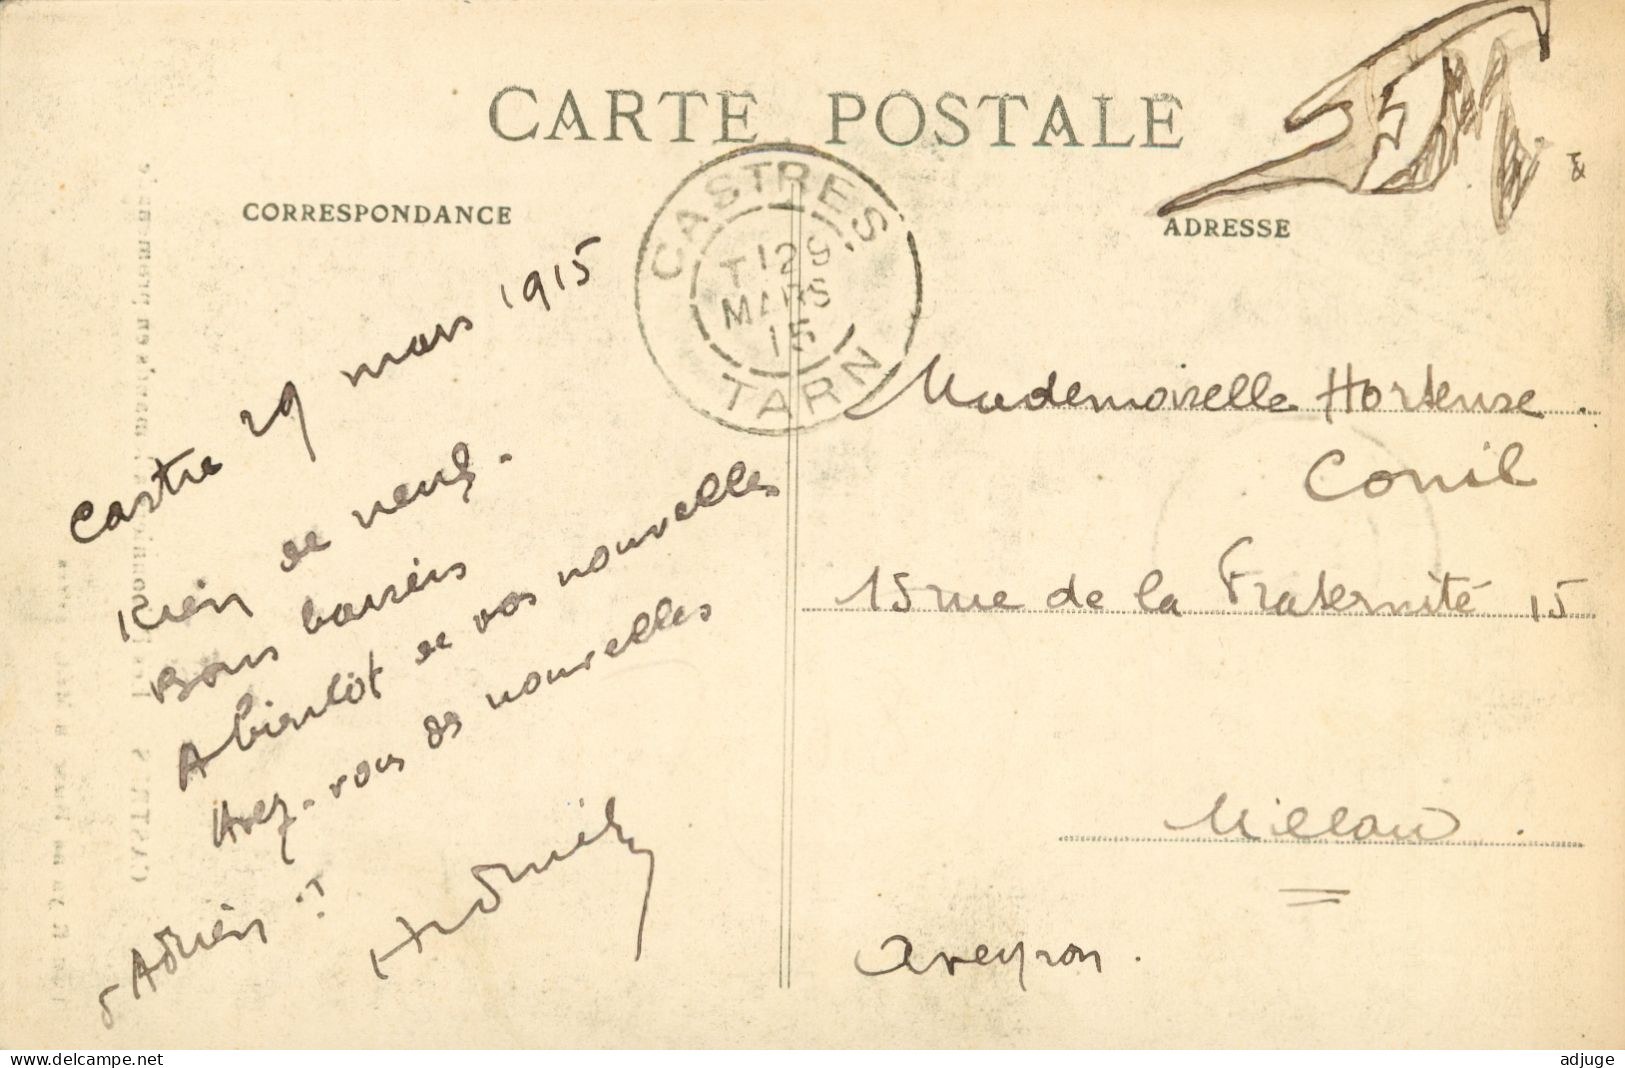 CARTE POSTALE
CORRESPONDANCE
ADRESSE
CASTRES
12 9
MARS
15
TARN
Castre 29 mars 1915
Rien de neuf.
Bons baisers
A bientôt de vos nouvelles
Avez-vous des nouvelles
d'Adrien ?
Mademoiselle Hortense
Conil
15 rue de la Fraternité 15
Millau
Aveyron.
www.delcampe.net
adjuge